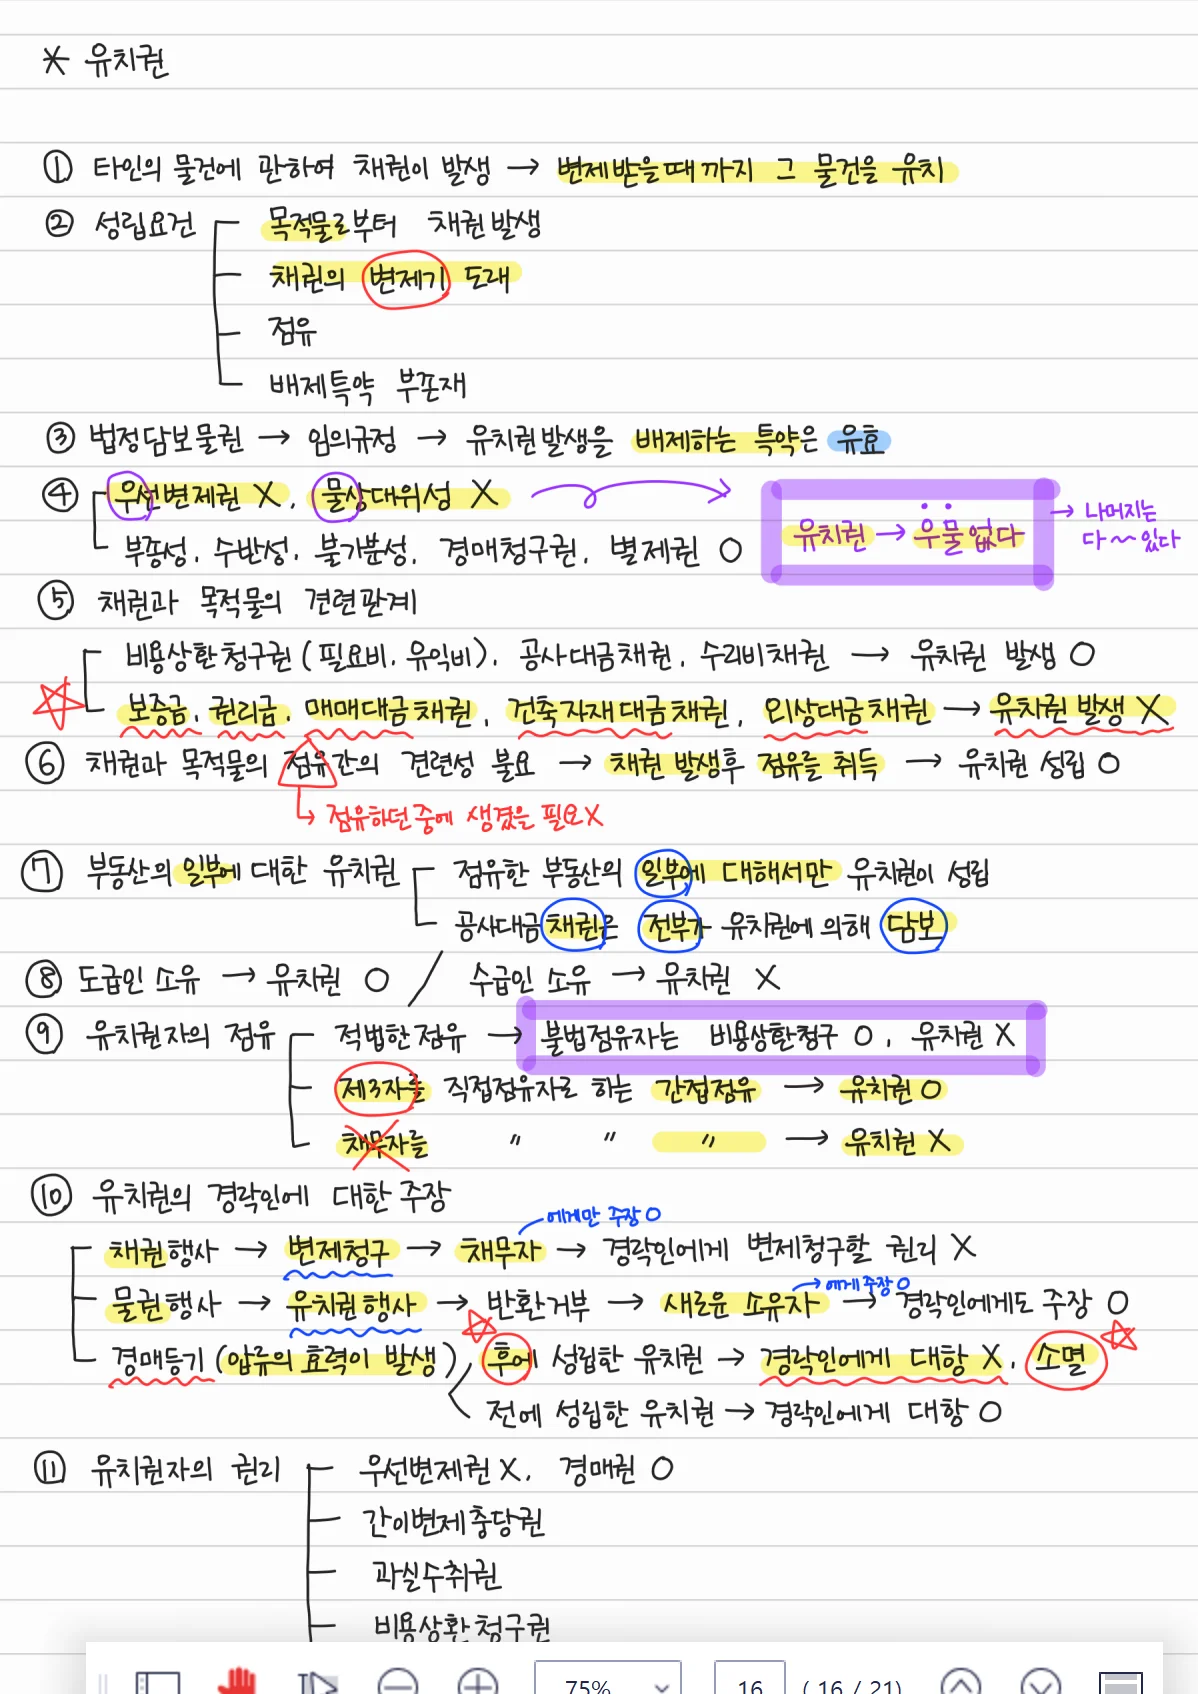 * 유치권
① 타인의 물건에 관하여 채권이 발생 → 변제받을때까지 그 물건을 유치
② 성립요건
목적물로부터 채권발생
채권의 변제기 도래
점유
배제특약 부존재
③ 법정담보물권 → 임의규정 → 유치권발생을 배제하는 특약은 유효
④ 우선변제권 X, 물상대위성 X
부종성, 수반성, 불가분성, 경매청구권, 별제권 O
유치권 → 우물없다
→ 나머지는
다~있다
⑤ 채권과 목적물의 견련관계
비용상환청구권 (필요비, 유익비), 공사대금채권, 수리비채권 → 유치권 발생 O
보증금, 권리금, 매매대금채권, 건축자재대금채권, 외상대금채권 → 유치권 발생 X
⑥ 채권과 목적물의 점유간의 견련성 불요 → 채권 발생후 점유를 취득 → 유치권 성립 O
↳ 점유하던 중에 생겼을 필요X
⑦ 부동산의 일부에 대한 유치권
점유한 부동산의 일부에 대해서만 유치권이 성립
공사대금채권은 전부가 유치권에 의해 담보
⑧ 도급인 소유 → 유치권 O / 수급인 소유 → 유치권 X
⑨ 유치권자의 점유
적법한점유 → 불법점유자는 비용상환청구 O, 유치권 X
제3자를 직접점유자로 하는 간접점유 → 유치권 O
채무자를 〃 〃 〃 → 유치권 X
⑩ 유치권의 경락인에 대한 주장
에게만 주장 O
채권행사 → 변제청구 → 채무자 → 경락인에게 변제청구할 권리 X
→ 에게 주장 O
물권행사 → 유치권행사 → 반환거부 → 새로운 소유자 → 경락인에게도 주장 O
경매등기 (압류의 효력이 발생) 후에 성립한 유치권 → 경락인에게 대항 X, 소멸
전에 성립한 유치권 → 경락인에게 대항 O
⑪ 유치권자의 권리
우선변제권 X, 경매권 O
간이변제충당권
과실수취권
비용상환청구권
75% 16 ( 16 / 21)